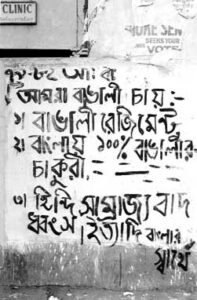 CLINIC
SEEKS YOUR
VOTE
আমরা বাঙালী চায় :-
১) বাঙালী রেজিমেন্ট
২) বাংলায় ১০০% বাঙালীর
চাকুরী.
৩) হিন্দি সাম্রাজ্যবাদ
ধ্বংস ইত্যাদি বাংলার
স্বার্থে